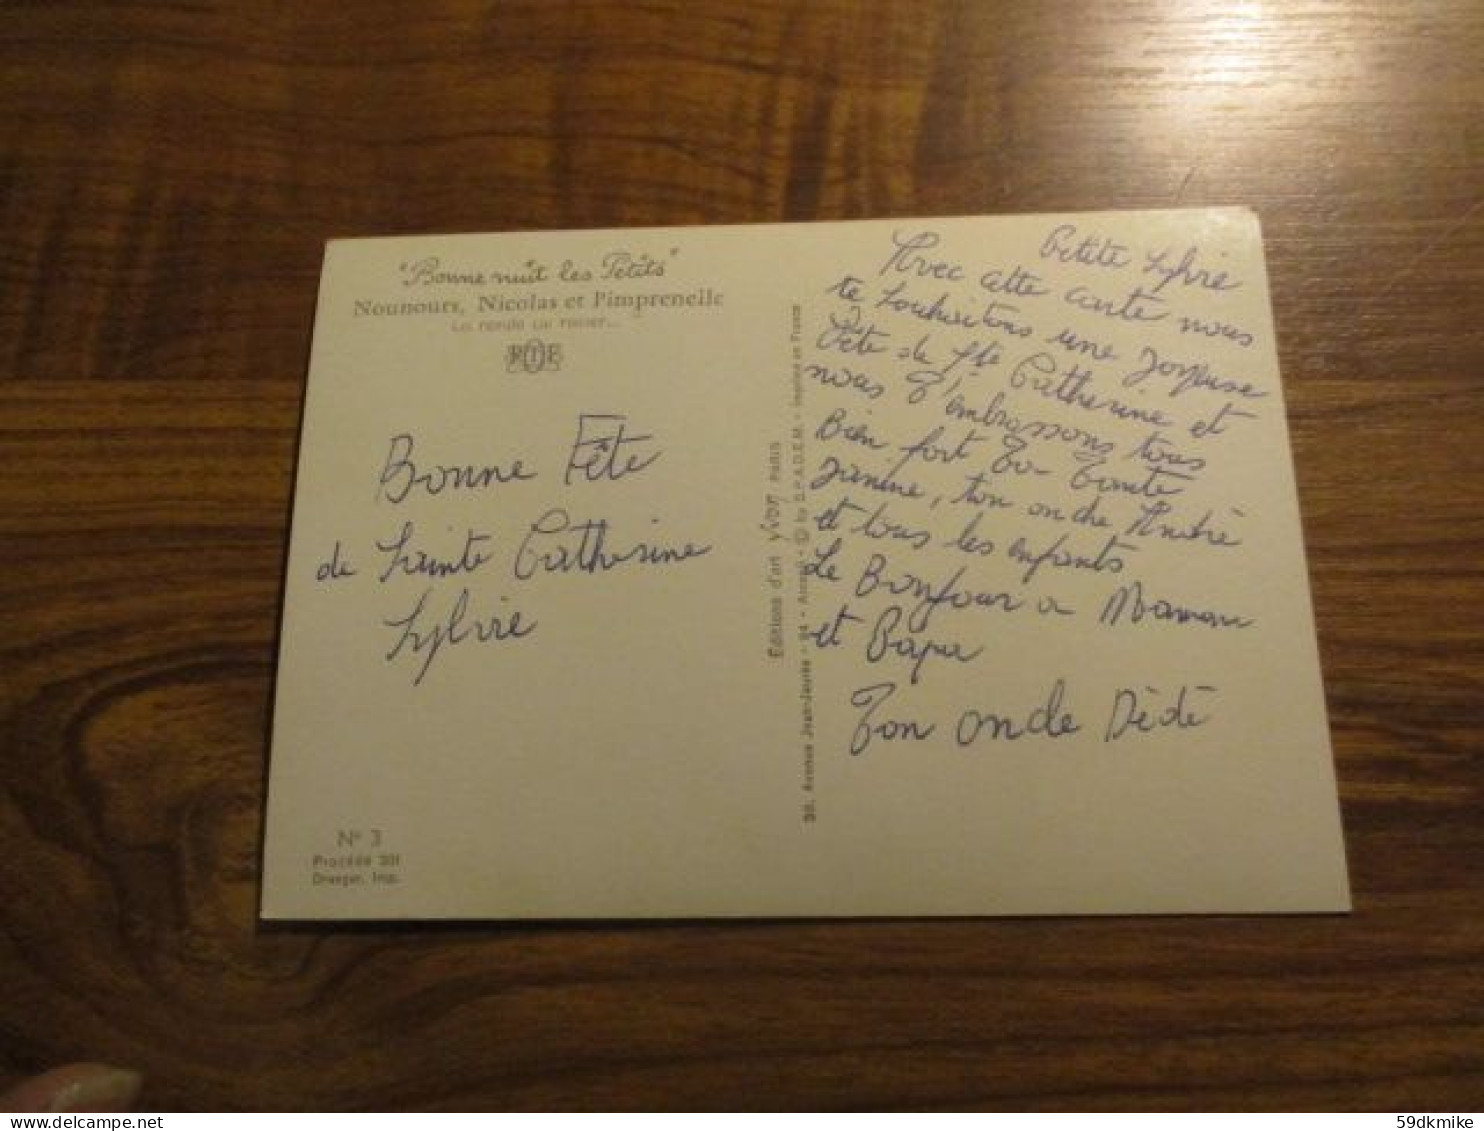 "Bonne nuit les Petits"
Nounours, Nicolas et Pimprenelle
RTF
Bonne Fête
de Sainte Catherine
Sylvie
N° 3
Procédé 301
Draeger, Imp.
Editions d'art YVON PARIS
30, Avenue Jean-Jaurès - 94 - Arcueil - © by S.P.A.D.E.M. - Imprimé en France
Petite Sylvie
Avec cette carte nous
te souhaitons une Joyeuse
Fête de Ste Catherine et
nous t'embrassons tous
Bien fort Ta Tante
Janine, ton oncle André
et tous les enfants
Le Bonjour a Maman
et Papa
Ton oncle Dédé
59dkmike